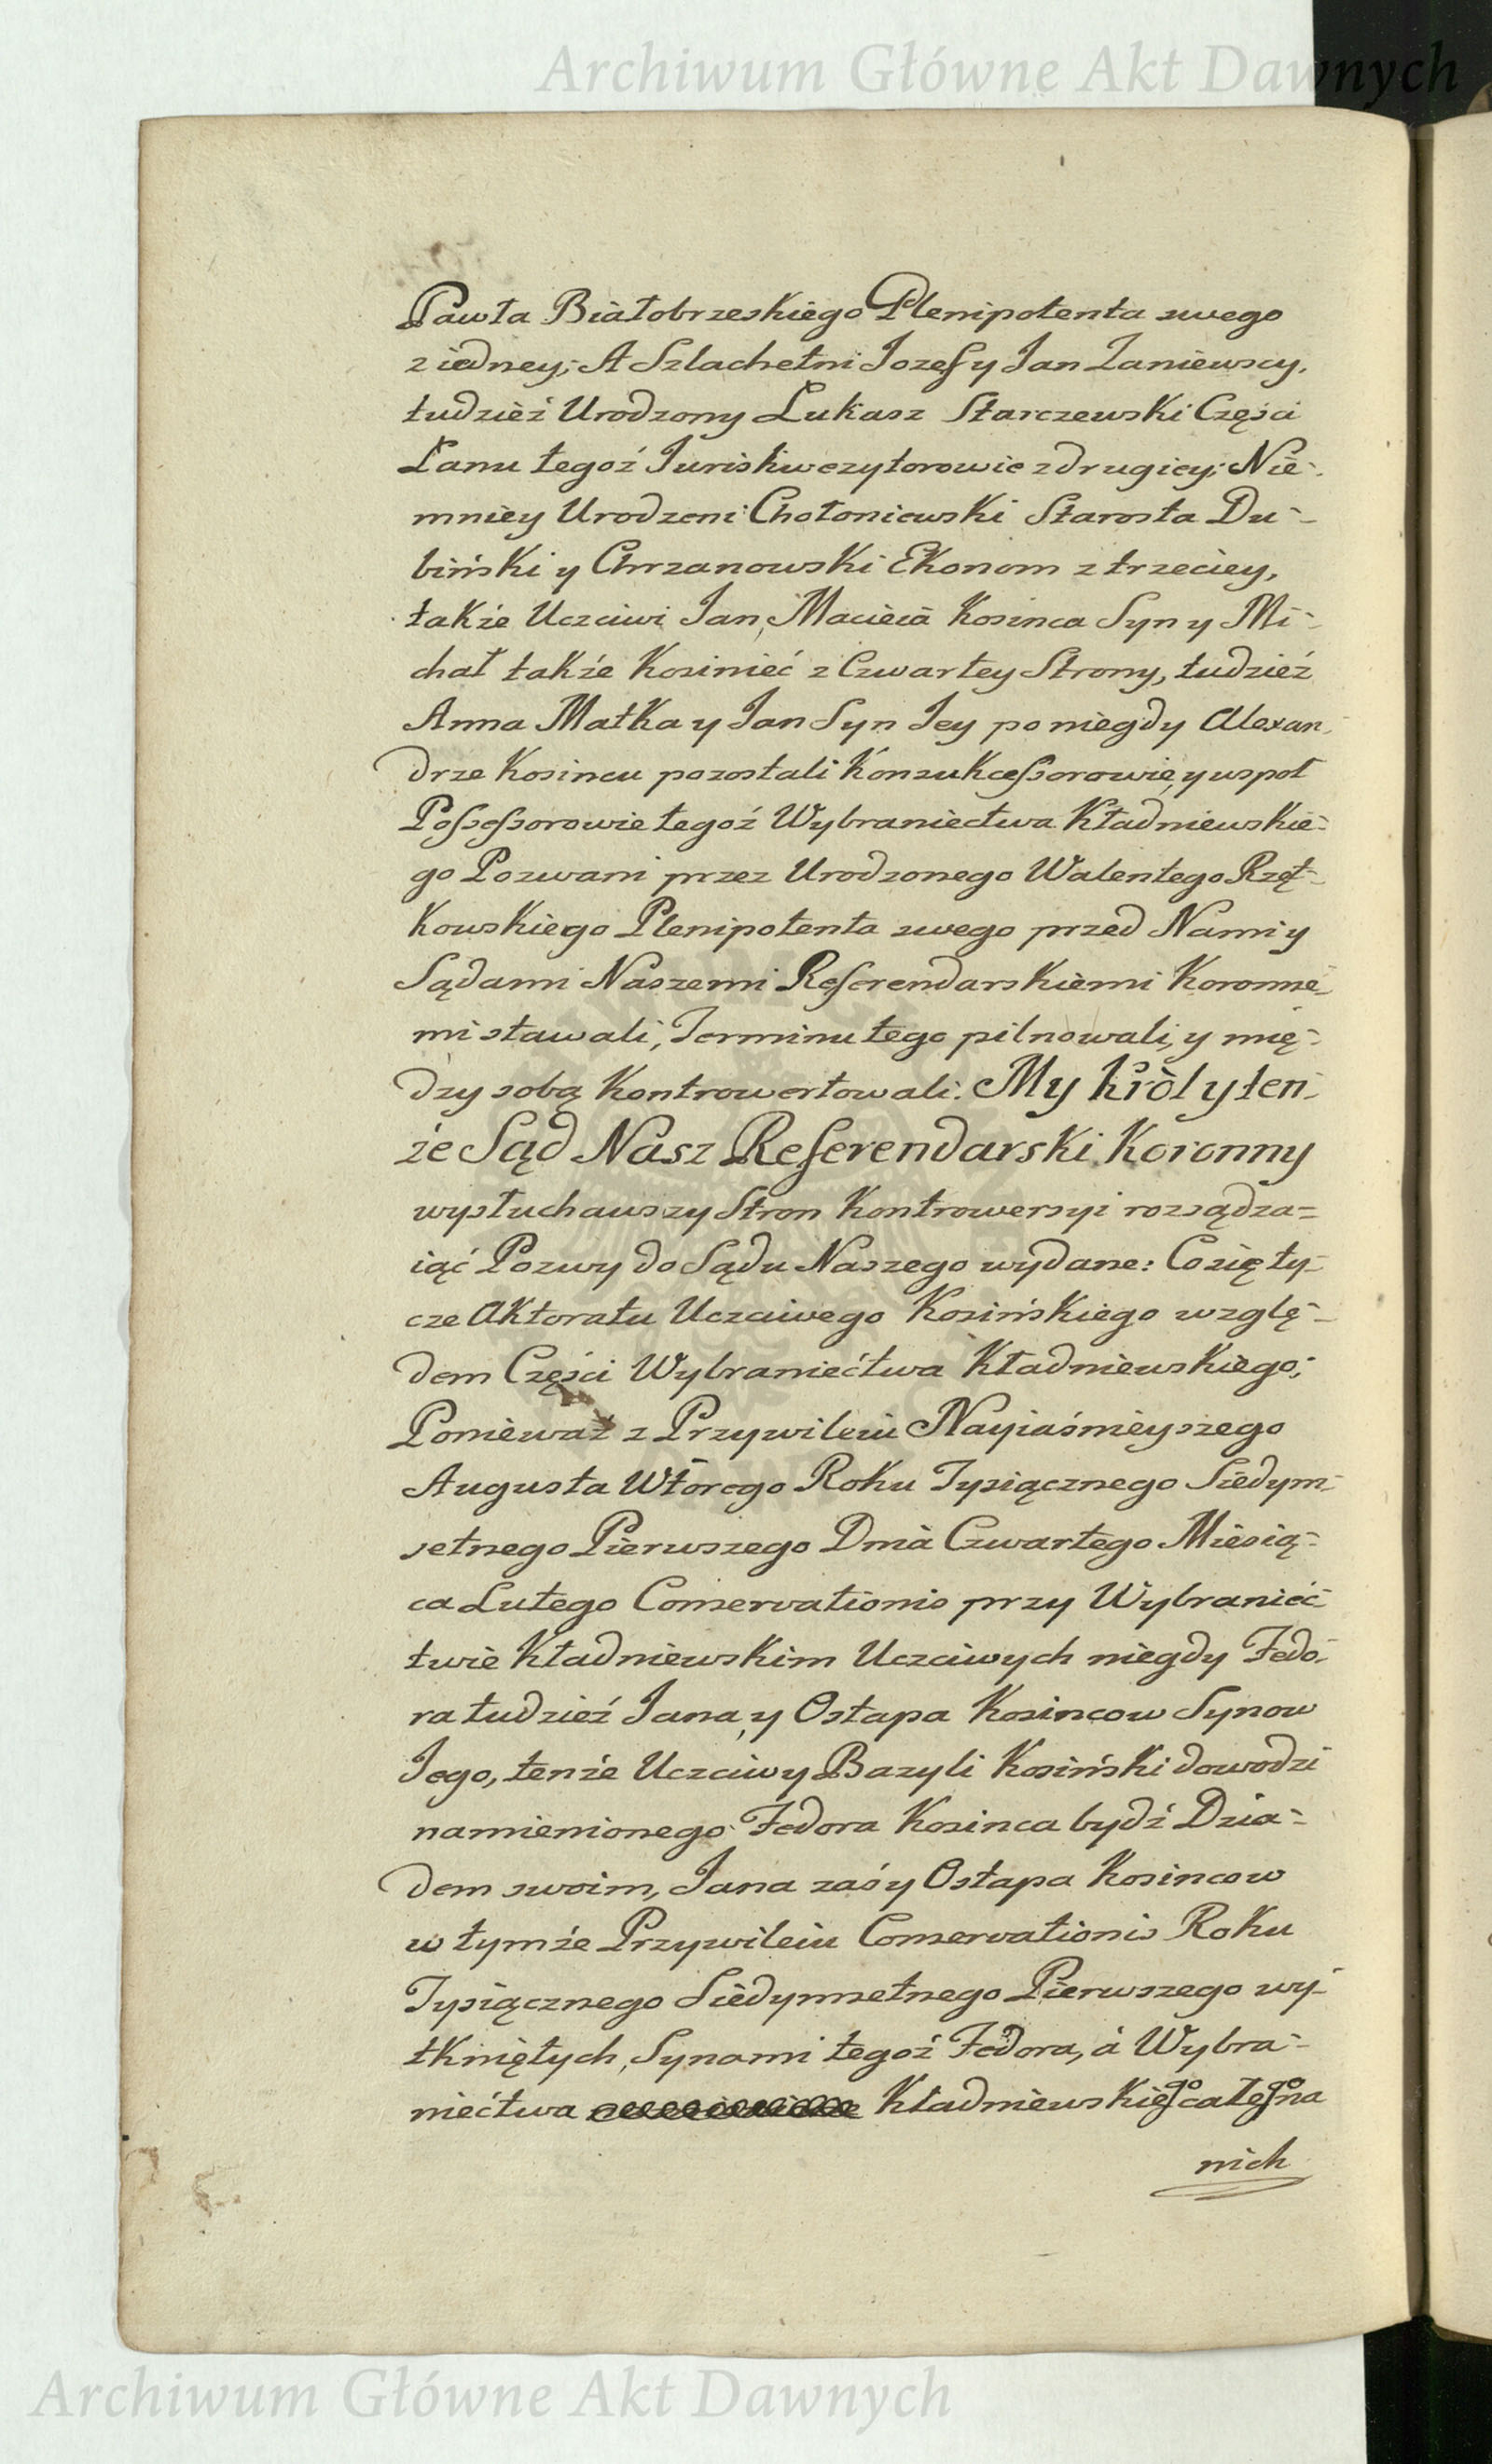 Archiwum Główne Akt Dawnych
Pawła Białobrzeskiego Plenipotenta swego
z iedney; A Szlachetni Jozef y Jan Zaniewscy,
tudzież Urodzony Łukasz Starczewski Części
Łanu tegoż Juriskwezytorowie z drugiey; Nie-
mniey Urodzeni Chołoniewski Starosta Du-
biński y Chrzanowski Ekonom z trzeciey,
także Uczciwi Jan, Macieia Kosinca Syn y Mi-
chał także Kosinieć z Czwartey Strony, tudzież
Anna Matka y Jan Syn Jey po niegdy Alexan-
drze Kosincu pozostali Konsukcessorowie, y wspoł
Possessorowie tegoż Wybraniectwa Kładniewskie-
go Pozwani przez Urodzonego Walentego Rzęt-
kowskiego Plenipotenta swego przed Nami y
Sądami Naszemi Referendarskiemi Koronne-
mi stawali, Terminu tego pilnowali, y mię-
dzy sobą Kontrowertowali. My Król y ten-
że Sąd Nasz Referendarski Koronny
wysłuchawszy Stron Kontrowersyi rozsądza=
iąć Pozwy do Sądu Naszego wydane: Co się ty-
cze Aktoratu Uczciwego Kosińskiego wzglę-
dem Części Wybraniećtwa Kładniewskiego;
Ponieważ z Przywileiu Nayiaśnieyszego
Augusta Wtorego Roku Tysiącznego Siedym-
setnego Pierwszego Dnia Czwartego Miesią-
ca Lutego Conservationis przy Wybranieć-
twie Kładniewskim Uczciwych niegdy Fedo-
ra tudzież Jana, y Ostapa Kosincow Synow
Jego, tenże Uczciwy Bazyli Kosiński dowodzi
namienionego Fedora Kosinca bydź Dzia-
dem swoim, Jana zaś y Ostapa Kosincow
w tymże Przywileiu Conservationis Roku
Tysiącznego Siedymsetnego Pierwszego wy-
tkniętych, Synami tegoż Fedora, á Wybra-
niećtwa Kładniewskiego całego na
nich
Archiwum Główne Akt Dawnych